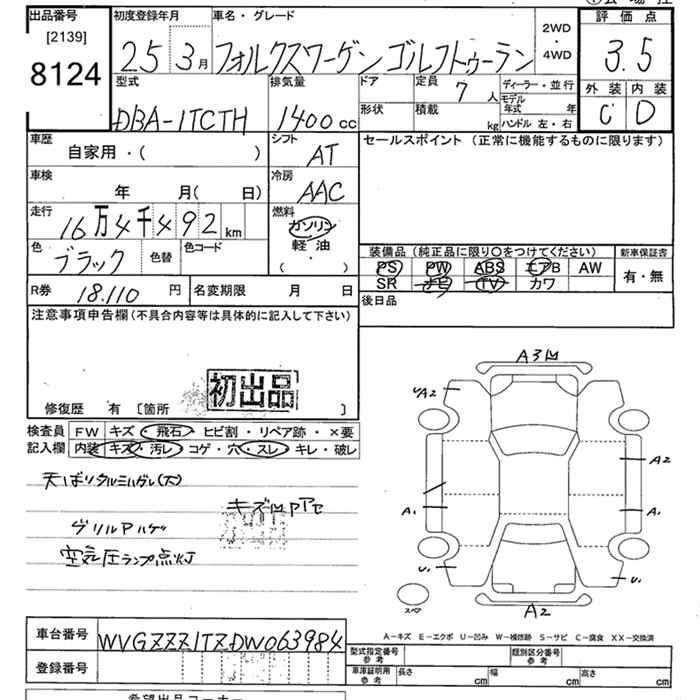 出品番号 初度登録年月 車名・グレード 評価点
[2139]
8124 25 3月 フォルクスワーゲン ゴルフトゥーラン 2WD・4WD 3.5
型式 排気量 ドア 定員 7人 ディーラー・並行 外装 内装
DBA-1TCTH 1400cc 形状 積載 kg モデル年式 年 ハンドル 左・右 C D
車歴 自家用・( ) シフト AT セールスポイント (正常に機能するものに限ります)
車検 年 月( 日) 冷房 AAC
走行 16万4千492km 燃料 ガソリン 軽油 ( )
色 ブラック 色替 色コード 装備品 (純正品に限り○をつけてください) 新車保証書
PS PW ABS エアB AW 有・無
R券 18.110円 名変期限 月 日 SR ナビ TV カワ
注意事項申告欄(不具合内容等は具体的に記入して下さい) 後日品
初出品
修復歴 有 [箇所 ]
検査員 FW キズ・飛石・ヒビ割・リペア跡・×要
記入欄 内装 キズ・汚レ コゲ・穴・スレ・キレ・破レ
A2
A2
A1 A1
U1 U1
スペア
A2
グリルアハゲ
空気圧ランプ点灯
車台番号 WVGZZZ1TZDW063984
登録番号
A-キズ E-エクボ U-凹み W-補修跡 S-サビ C-腐食 XX-交換済
型式指定番号 参考 類別区分番号 参考
車庫証明用 参考 長さ cm 幅 cm 高さ cm
希望出品コーナー